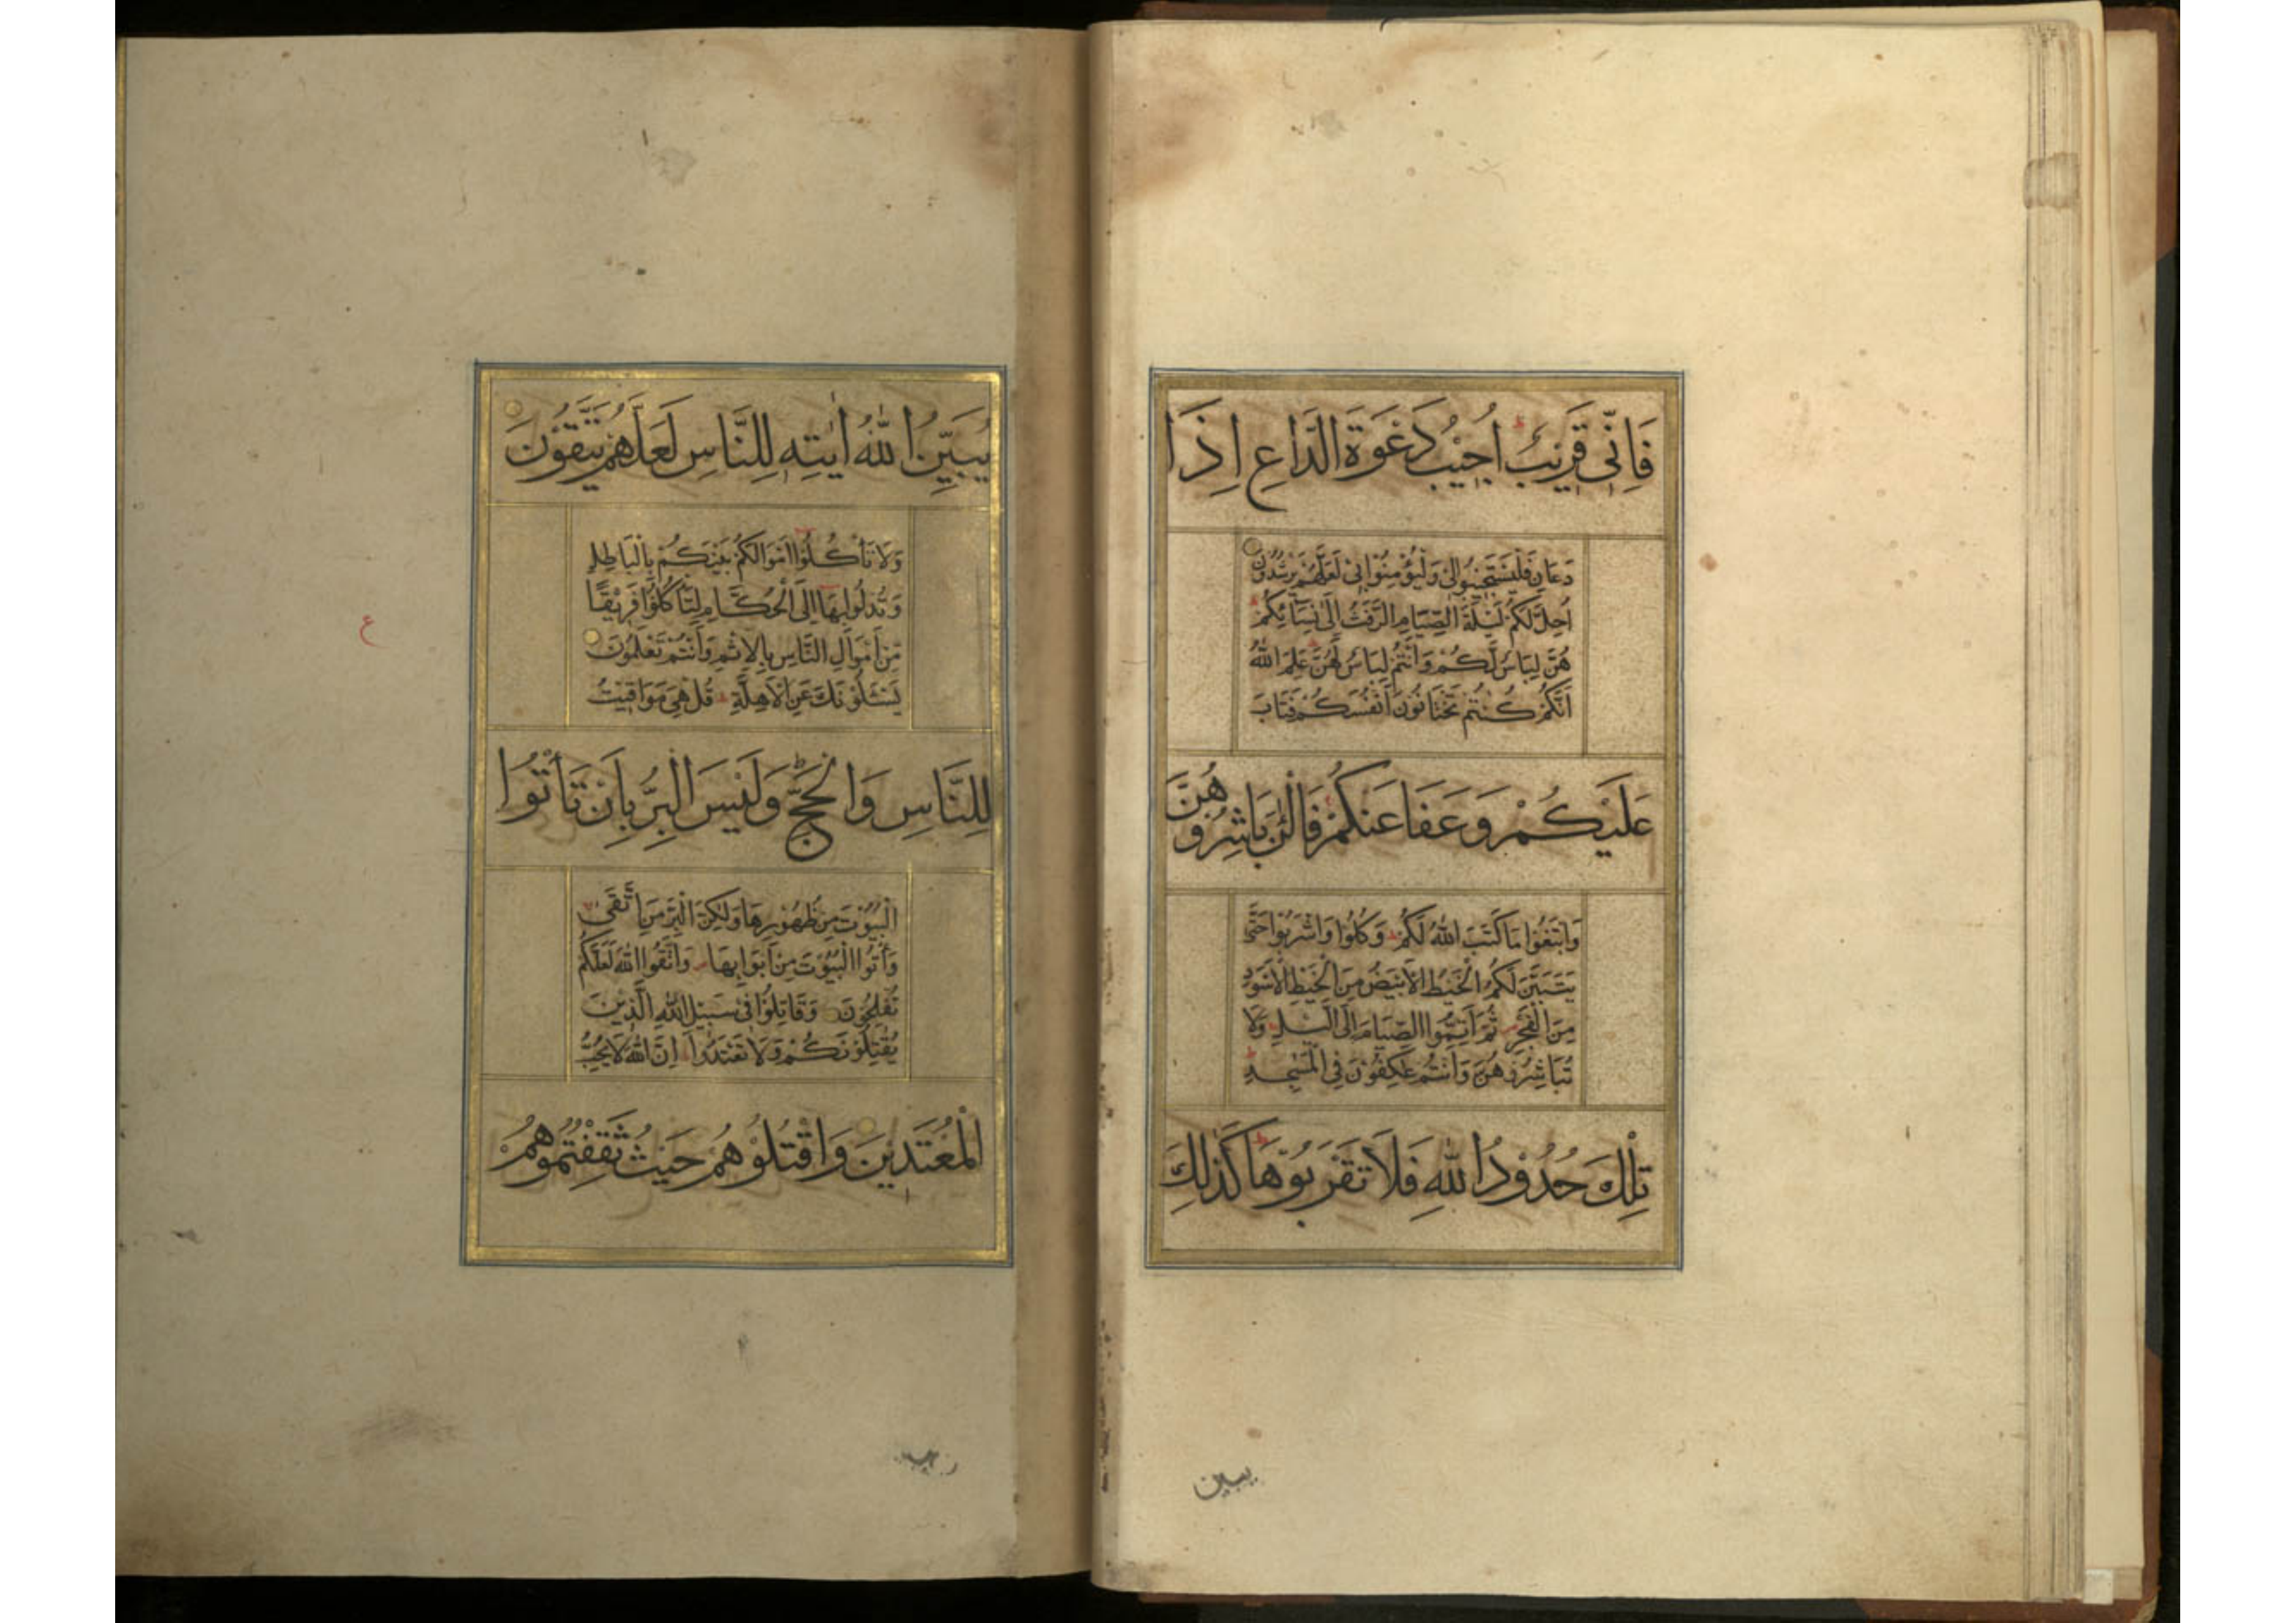 فَاِنِّى قَرِيْبٌ ط اُجِيْبُ دَعْوَةَ الدَّاعِ اِذَا
دَعَانِ فَلْيَسْتَجِيْبُوْالِىْ وَلْيُؤْمِنُوْابِىْ لَعَلَّهُمْ يَرْشُدُوْنَ
اُحِلَّ لَكُمْ لَيْلَةَ الصِّيَامِ الرَّفَثُ اِلٰى نِسَآئِكُمْ ط
هُنَّ لِبَاسٌ لَّكُمْ وَاَنْتُمْ لِبَاسٌ لَّهُنَّ ط عَلِمَ اللهُ
اَنَّكُمْ كُنْتُمْ تَخْتَانُوْنَ اَنْفُسَكُمْ فَتَابَ
عَلَيْكُمْ وَعَفَاعَنْكُمْ فَالْئٰنَ بَاشِرُوْهُنَّ
وَابْتَغُوْا مَاكَتَبَ اللهُ لَكُمْ وَكُلُوْا وَاشْرَبُوْا حَتّٰى
يَتَبَيَّنَ لَكُمُ الْخَيْطُ الْاَبْيَضُ مِنَ الْخَيْطِ الْاَسْوَدِ
مِنَ الْفَجْرِ ثُمَّ اَتِمُّوا الصِّيَامَ اِلَى الَّيْلِ وَلَا
تُبَاشِرُوْهُنَّ وَاَنْتُمْ عٰكِفُوْنَ فِى الْمَسٰجِدِ ط
تِلْكَ حُدُوْدُ اللهِ فَلَا تَقْرَبُوْهَا ط كَذٰلِكَ
يبين
يُبَيِّنُ اللهُ اٰيٰتِهٖ لِلنَّاسِ لَعَلَّهُمْ يَتَّقُوْنَ
وَلَا تَأْكُلُوْا اَمْوَالَكُمْ بَيْنَكُمْ بِالْبَاطِلِ
وَتُدْلُوْابِهَا اِلَى الْحُكَّامِ لِتَأْكُلُوْا فَرِيْقًا
مِّنْ اَمْوَالِ النَّاسِ بِالْاِثْمِ وَاَنْتُمْ تَعْلَمُوْنَ
يَسْئَلُوْنَكَ عَنِ الْاَهِلَّةِ ط قُلْ هِىَ مَوَاقِيْتُ
لِلنَّاسِ وَالْحَجِّ ط وَلَيْسَ الْبِرُّ بِاَنْ تَأْتُوا
الْبُيُوْتَ مِنْ ظُهُوْرِهَا وَلٰكِنَّ الْبِرَّ مَنِ اتَّقٰى
وَأْتُوا الْبُيُوْتَ مِنْ اَبْوَابِهَا وَاتَّقُوا اللهَ لَعَلَّكُمْ
تُفْلِحُوْنَ وَقَاتِلُوْا فِىْ سَبِيْلِ اللهِ الَّذِيْنَ
يُقَاتِلُوْنَكُمْ وَلَا تَعْتَدُوْا اِنَّ اللهَ لَا يُحِبُّ
الْمُعْتَدِيْنَ وَاقْتُلُوْهُمْ حَيْثُ ثَقِفْتُمُوْهُمْ
ع